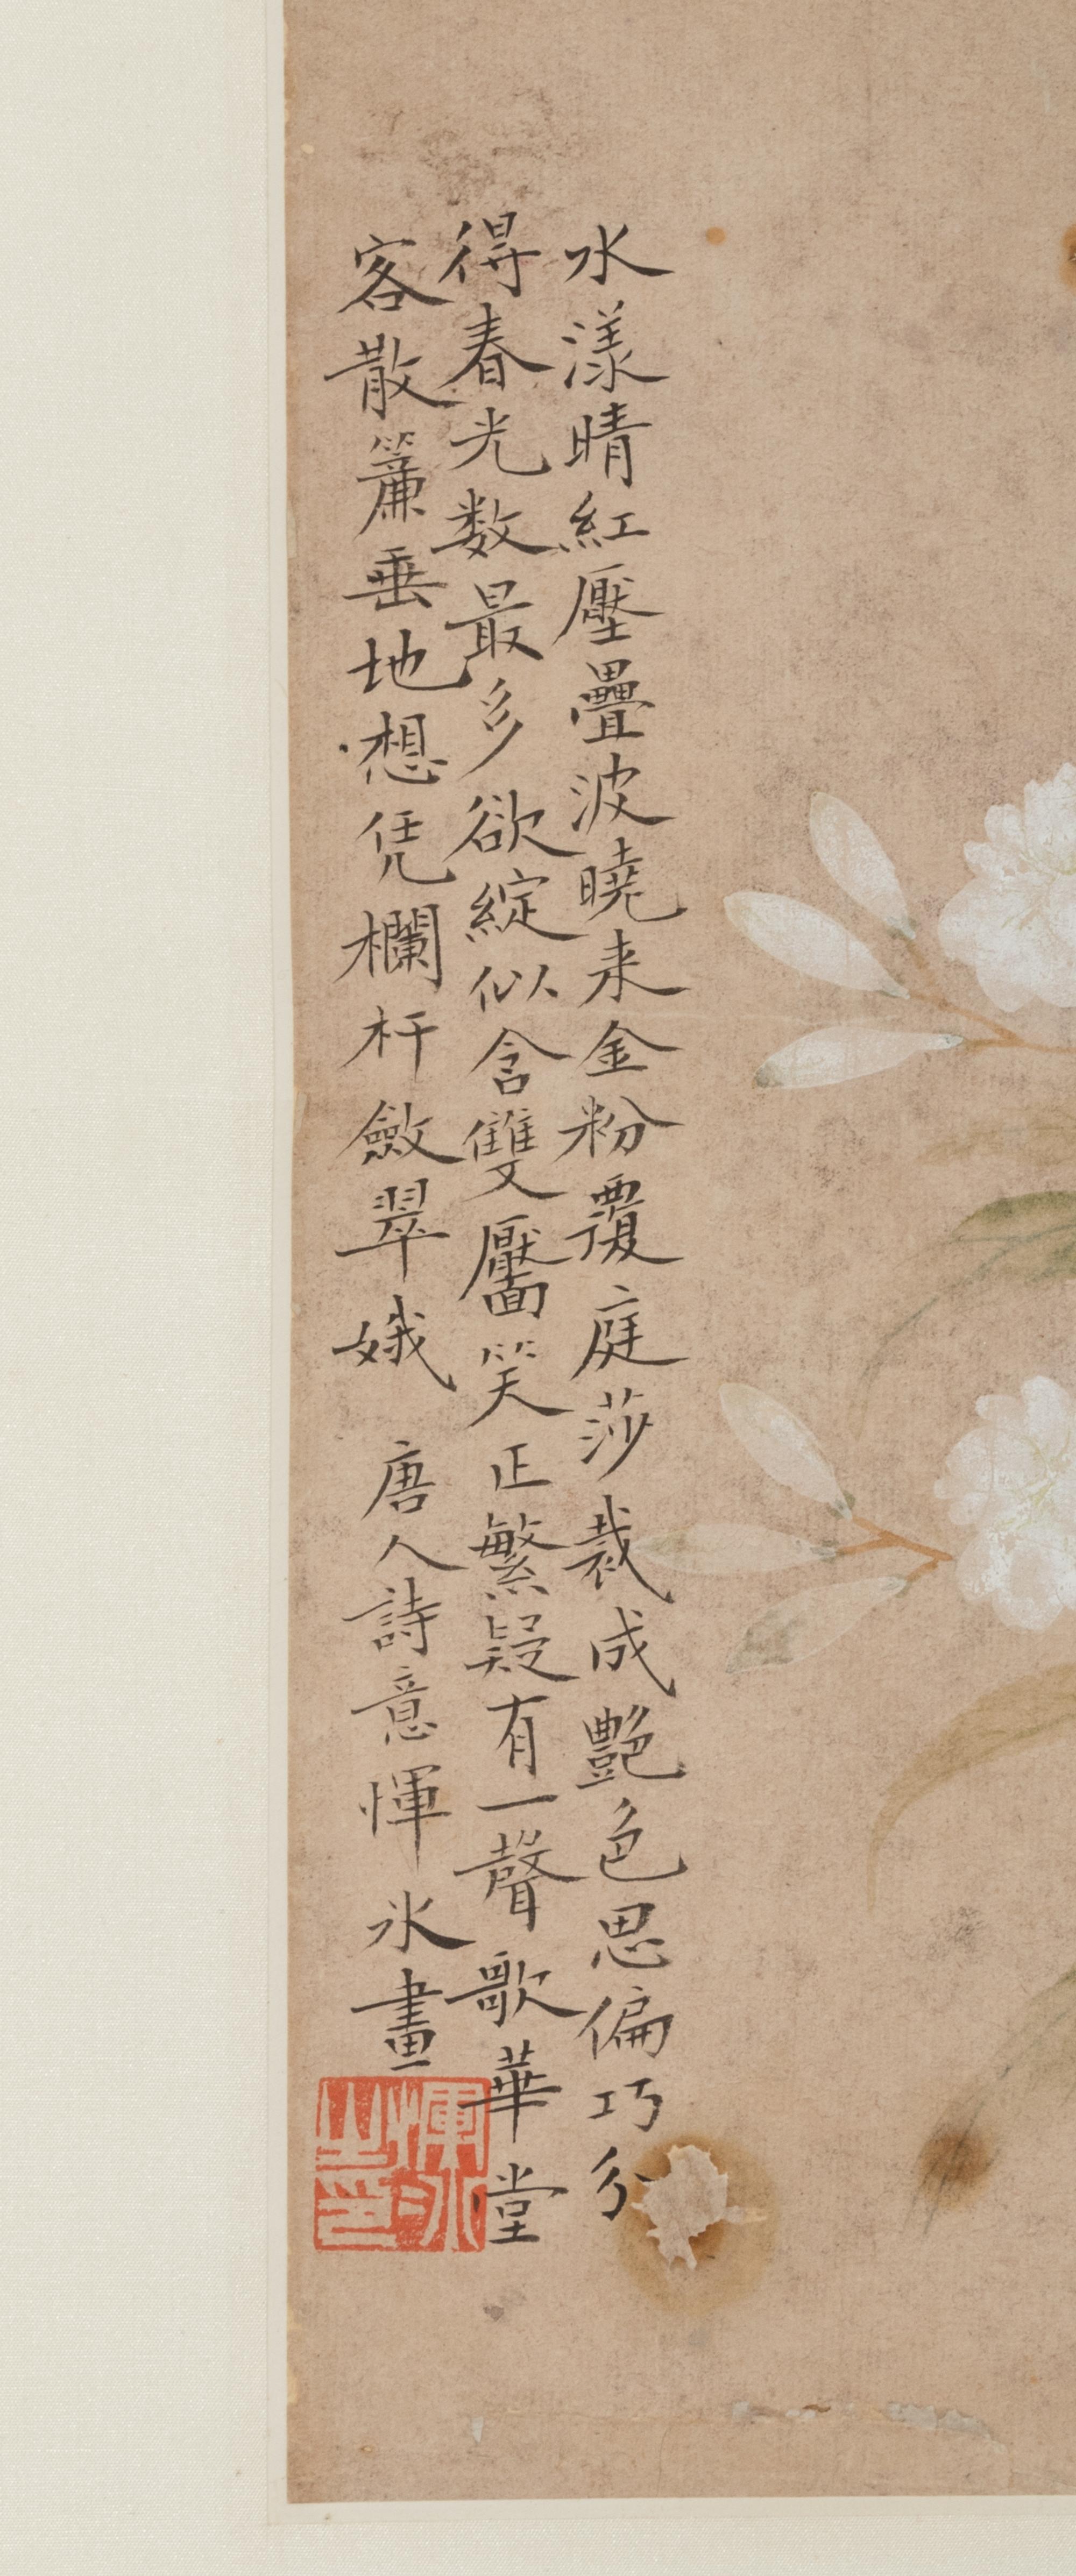 水漾晴紅壓疊波曉来金粉覆庭莎裁成艷色思偏巧分
得春光数最多欲綻似含雙靨笑正繁疑有一聲歌華堂
客散簾垂地想凭欄杆斂翠娥 唐人詩意惲冰畫
惲冰之印